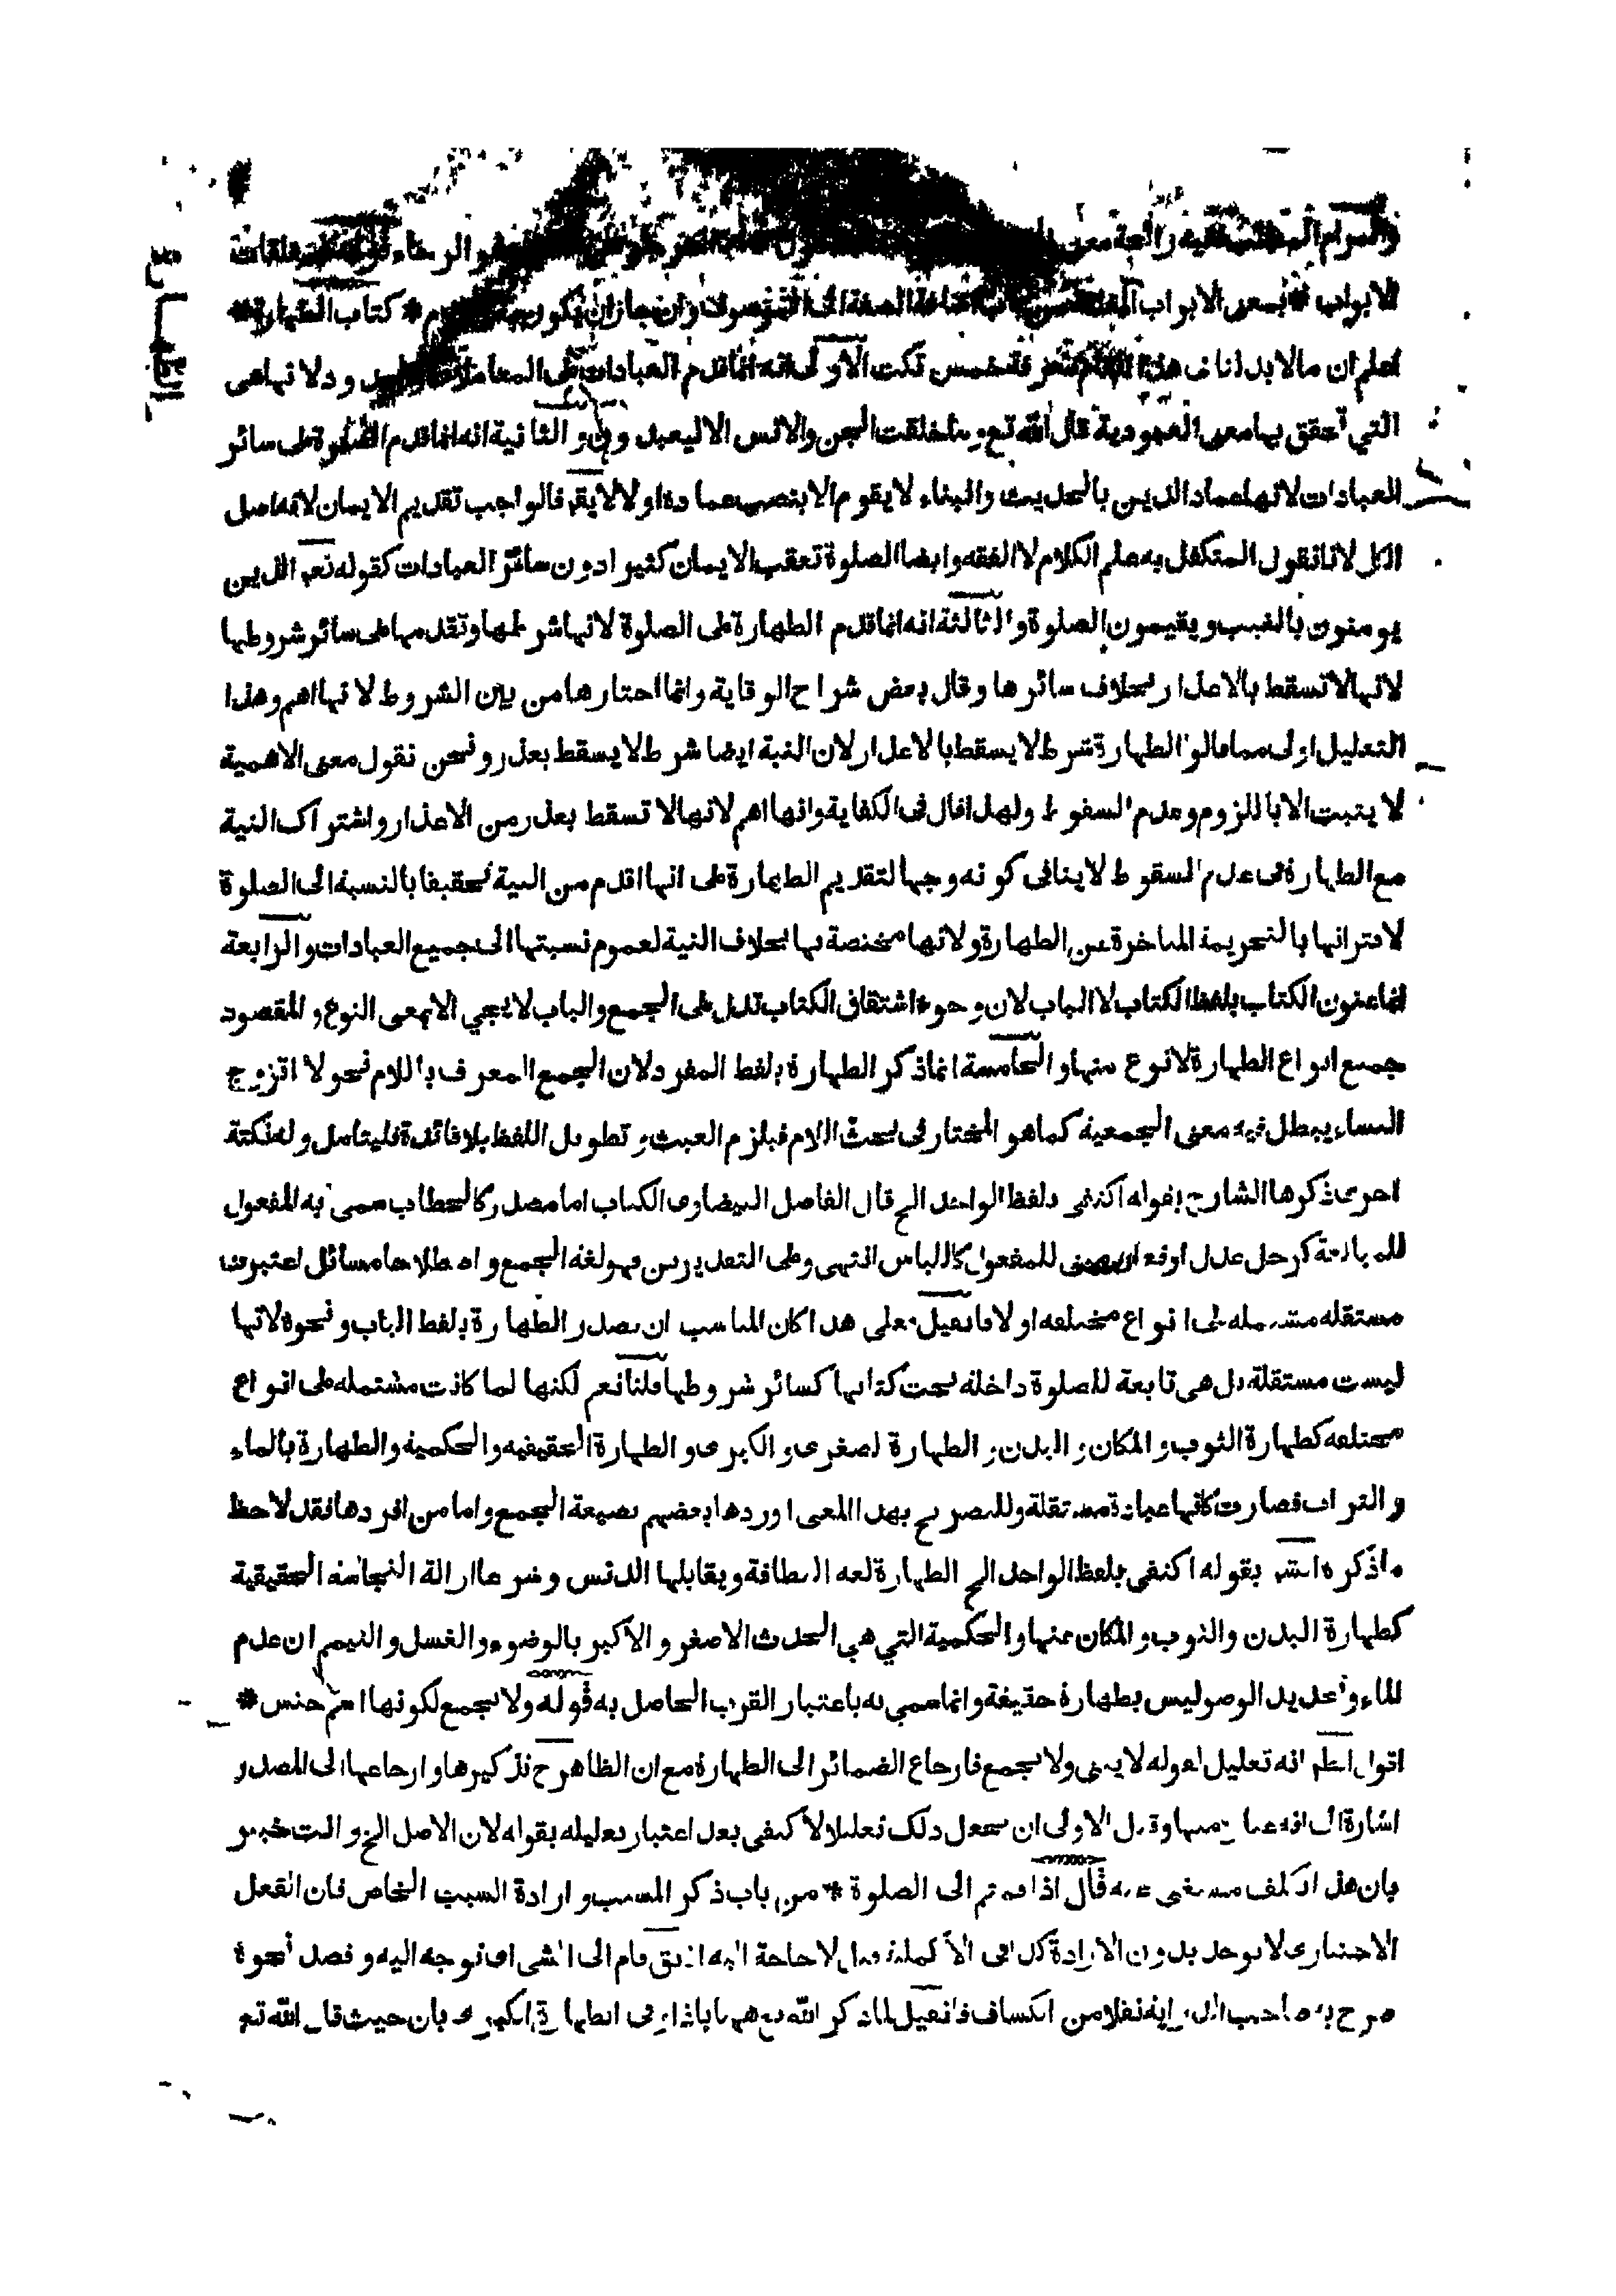 والمرام رائحة معنى هو الرجاء قوله متعلقات
الابواب * بمعنى الابواب اضافة الصفة الى الموصوف وان جاز ان يكون * كتاب الطهارة *
اعلم ان مالا بد لنا فى هذا المقام خمس نكت الاولى انه انما قدم العبادات على المعاملات والحدود لانها هى
التي تحقق بها معنى العبودية قال الله تع وما خلقت الجن والانس الا ليعبدون والثانية انه انما قدم الصلوة على سائر
العبادات لانها عماد الدين بالحديث والبناء لا يقوم الا بنصب عماده اولا لا يقر فالواجب تقديم الايمان لانه اصل
الكل لانا نقول المتكفل به علم الكلام لا الفقه وايضا الصلوة تعقب الايمان كثيرا دون سائر العبادات كقوله تع الذين
يومنون بالغيب ويقيمون الصلوة والثالثة انه انما قدم الطهارة على الصلوة لانها شرطها وتقدمها على سائر شروطها
لانها لا تسقط بالاعذار بخلاف سائرها وقال بعض شراح الوقاية وانما اختارها من بين الشروط لانها اهم وهذا
التعليل اولى مما قالوا الطهارة شرط لا يسقط بالاعذار لان النية ايضا شرط لا يسقط بعذر ونحن نقول معنى الاهمية
لا يثبت الا باللزوم وعدم السقوط ولهذا قال فى الكفاية وانها اهم لانها لا تسقط بعذر من الاعذار واشتراك النية
مع الطهارة فى عدم السقوط لا ينافى كونه وجها لتقديم الطهارة على انها اقدم من النية تحقيقا بالنسبة الى الصلوة
لاقترانها بالتحريمة المتاخرة عن الطهارة ولانها مختصة بها بخلاف النية لعموم نسبتها الى جميع العبادات والرابعة
انما عنون الكتاب بلفظ الكتاب لا الباب لان وجوه اشتقاق الكتاب تدل على الجمع والباب لا يجي الا بمعنى النوع والمقصود
جميع انواع الطهارة لا نوع منها والخامسة انما ذكر الطهارة بلفظ المفرد لان الجمع المعرف باللام نحو لا اتزوج
النساء يبطل فيه معنى الجمعية كما هو المختار فى بحث اللام فيلزم العبث وتطويل اللفظ بلا فائدة فليتامل وله نكتة
اخرى ذكرها الشارح بقوله اكتفى بلفظ الواحد الخ قال الفاضل البيضاوى الكتاب اما مصدر كالخطاب سمى به المفعول
للمبالغة كرجل عدل او فعال بمعنى للمفعول كاللباس انتهى وعلى التقديرين فهو لغة الجمع واصطلاحا مسائل اعتبرت
مستقله مشتمله على انواع مختلفه او لا فان قيل فعلى هذا كان المناسب ان يصدر الطهارة بلفظ الباب ونحوه لانها
ليست مستقلة بل هى تابعة للصلوة داخلة تحت كتابها كسائر شروطها قلنا نعم لكنها لما كانت مشتمله على انواع
مختلفه كطهارة الثوب والمكان والبدن والطهارة الصغرى والكبرى والطهارة الحقيقيه والحكمية والطهارة بالماء
والتراب فصارت كانها عبادة مستقلة وللتصريح بهذا المعنى اوردها بعضهم بصيغة الجمع واما من افردها فقد لاحظ
ما ذكره الش بقوله اكتفى بلفظ الواحد الخ الطهارة لغه النظافة ويقابلها الدنس وشرعا ازالة النجاسة الحقيقية
كطهارة البدن والثوب والمكان عنها والحكمية التي هى الحدث الاصغر والاكبر بالوضوء والغسل والتيمم ان عدم
الماء وتجديد الوضو ليس بطهارة حقيقة وانما سمي به باعتبار القرب الحاصل به قوله ولا يجمع لكونها اسم جنس *
اقول اعلم انه تعليل لقوله لا يثنى ولا يجمع فارجاع الضمائر الى الطهارة مع ان الظاهر ح تذكيرها وارجاعها الى المصدر
اشارة الى انه وقيل الاولى ان يجعل ذلك تعليلا لاكتفى بعد اعتبار تعليله بقوله لان الاصل الخ وانت خبير
بان هذا التكلف مستغنى عنه قال اذا قمتم الى الصلوة * من باب ذكر المسبب وارادة السبب الخاص فان الفعل
الاختيارى لا يوجد بدون الارادة كذا فى الاكملية وقيل لا حاجة اليه اذ يق قام الى الشى اى توجه اليه وقصد نحوه
صرح به صاحب النهاية نقلا من الكشاف فان قيل لم ذكر الله تع ههنا باذا وفى الطهارة الكبرى بان حيث قال الله تع